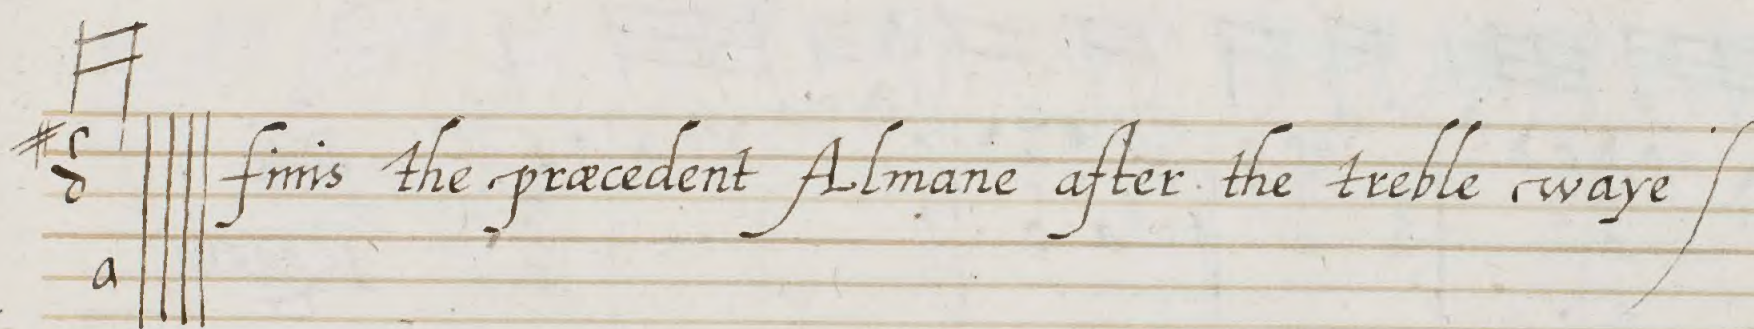 finis the præcedent Almane after the treble waye
a